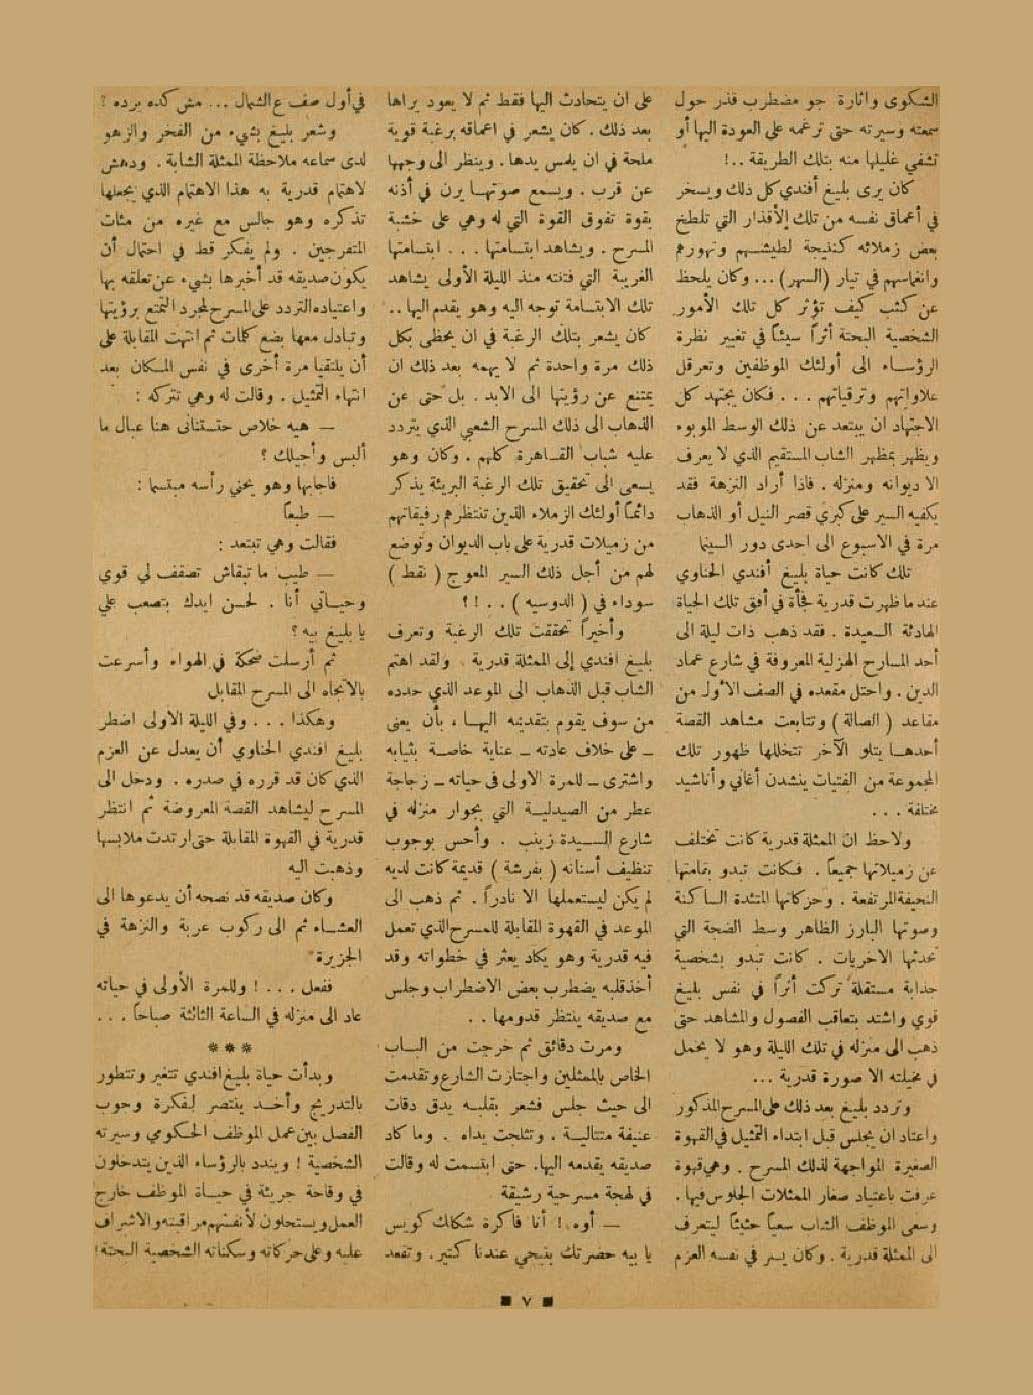 الشكوى واثارة جو مضطرب قذر حول
سمعته وسيرته حتى ترغمه على العودة اليها أو
تشفي غليلها منه بتلك الطريقة ..!
كان يرى بليغ أفندي كل ذلك ويسخر
في أعماق نفسه من تلك الأقذار التي تلطخ
بعض زملائه كنتيجة لطيشهم وتهورهم
وانغماسهم في تيار (السهر) ... وكان يلحظ
عن كثب كيف تؤثر كل تلك الأمور
الشخصية البحتة أثراً سيئاً في تغيير نظرة
الرؤساء الى أولئك الموظفين وتعرقل
علاواتهم وترقياتهم ... فكان يجتهد كل
الاجتهاد ان يبتعد عن ذلك الوسط الموبوء
ويظهر بمظهر الشاب المستقيم الذي لا يعرف
الا ديوانه ومنزله . فاذا أراد النزهة فقد
يكفيه السير على كبري قصر النيل أو الذهاب
مرة في الاسبوع الى احدى دور السينما
تلك كانت حياة بليغ أفندي الحناوي
عندما ظهرت قدرية فجأة في أفق تلك الحياة
الهادئة السعيدة . فقد ذهب ذات ليلة الى
أحد المسارح الهزلية المعروفة في شارع عماد
الدين . واحتل مقعده في الصف الأول من
مقاعد ( الصالة ) وتتابعت مشاهد القصة
أحدها يتلو الآخر تتخللها ظهور تلك
المجموعة من الفتيات ينشدن أغاني وأناشيد
مختلفة ...
ولاحظ ان الممثلة قدرية كانت تختلف
عن زميلاتها جميعاً . فكانت تبدو بقامتها
النحيفة المرتفعة . وحركاتها المتئدة الساكنة
وصوتها البارز الظاهر وسط الضجة التي
تحدثها الاخريات . كانت تبدو بشخصية
جذابة مستقلة تركت أثراً في نفس بليغ
قوي واشتد بتعاقب الفصول والمشاهد حتى
ذهب الى منزله في تلك الليلة وهو لا يحمل
في مخيلته الا صورة قدرية ...
وتردد بليغ بعد ذلك على المسرح المذكور
واعتاد ان يجلس قبل ابتداء التمثيل في القهوة
الصغيرة المواجهة لذلك المسرح . وهي قهوة
عرفت باعتياد صغار الممثلات الجلوس فيها .
وسعى الموظف الشاب سعياً حثيثاً ليتعرف
الى الممثلة قدرية . وكان يسر في نفسه العزم
على ان يتحادث اليها فقط ثم لا يعود يراها
بعد ذلك . كان يشعر في اعماقه برغبة قوية
ملحة في ان يلمس يدها . وينظر الى وجهها
عن قرب . ويسمع صوتها يرن في أذنه
بقوة تفوق القوة التي له وهي على خشبة
المسرح . ويشاهد ابتسامتها ... ابتسامتها
الغريبة التي فتنته منذ الليلة الأولى يشاهد
تلك الابتسامة توجه اليه وهو يقدم اليها ..
كان يشعر بتلك الرغبة في ان يحظى بكل
ذلك مرة واحدة ثم لا يهمه بعد ذلك ان
يمتنع عن رؤيتها الى الابد . بل حتى عن
الذهاب الى ذلك المسرح الشعبي الذي يتردد
عليه شباب القاهرة كلهم . وكان وهو
يسعى الى تحقيق تلك الرغبة البريئة يذكر
دائماً أولئك الزملاء الذين تنتظرهم رفيقاتهم
من زميلات قدرية على باب الديوان وتوضع
لهم من أجل ذلك السير المعوج ( نقط )
سوداء في ( الدوسيه ) .. !؟
وأخيراً تحققت تلك الرغبة وتعرف
بليغ افندي إلى الممثلة قدرية . ولقد اهتم
الشاب قبل الذهاب الى الموعد الذي حدده
من سوف يقوم بتقديمه اليها ، بأن يعنى
ــ على خلاف عادته ــ عناية خاصة بثيابه
واشترى ــ للمرة الاولى في حياته ــ زجاجة
عطر من الصيدلية التي بجوار منزله في
شارع السيدة زينب . وأحس بوجوب
تنظيف أسنانه ( بفرشة ) قديمة كانت لديه
لم يكن ليستعملها الا نادراً . ثم ذهب الى
الموعد في القهوة المقابلة للمسرح الذي تعمل
فيه قدرية وهو يكاد يعثر في خطواته وقد
أخذ قلبه يضطرب بعض الاضطراب وجلس
مع صديقه ينتظر قدومها ..
ومرت دقائق ثم خرجت من الباب
الخاص بالممثلين واجتازت الشارع وتقدمت
الى حيث جلس فشعر بقلبه يدق دقات
عنيفة متتالية . وتثلجت يداه . وما كاد
صديقه يقدمه اليها . حتى ابتسمت له وقالت
في لهجة مسرحية رشيقة
— أوه ! أنا فاكرة شكلك كويس
يا بيه حضرتك بتيجي عندنا كتير . وتقعد
في أول صف ع الشمال ... مش كده برده ؟
وشعر بليغ بشيء من الفخر والزهو
لدى سماعه ملاحظة الممثلة الشابة . ودهش
لاهتمام قدرية به هذا الاهتمام الذي يجعلها
تذكره وهو جالس مع غيره من مئات
المتفرجين . ولم يفكر قط في احتمال أن
يكون صديقه قد أخبرها بشيء عن تعلقه بها
واعتياده التردد على المسرح لمجرد التمتع برؤيتها
وتبادل معها بضع كلمات ثم انتهت المقابلة على
أن يلتقيا مرة أخرى في نفس المكان بعد
انتهاء التمثيل . وقالت له وهي تتركه :
— هيه خلاص حتستنانى هنا عبال ما
ألبس وأجيلك ؟
فاجابها وهو يحني رأسه مبتسما :
— طبعاً
فقالت وهي تبتعد :
— طيب ما تبقاش تصقف لي قوي
وحياتي أنا . لحسن ايدك بتصعب علي
يا بليغ بيه ؟
ثم أرسلت ضحكة في الهواء وأسرعت
بالاتجاه الى المسرح المقابل
وهكذا ... وفي الليلة الاولى اضطر
بليغ افندي الحناوي أن يعدل عن العزم
الذي كان قد قرره في صدره . ودخل الى
المسرح ليشاهد القصة المعروضة ثم انتظر
قدرية في القهوة المقابلة حتى ارتدت ملابسها
وذهبت اليه
وكان صديقه قد نصحه أن يدعوها الى
العشاء ثم الى ركوب عربة والنزهة في
الجزيرة
ففعل ...! وللمرة الأولى في حياته
عاد الى منزله في الساعة الثالثة صباحاً ...
***
وبدأت حياة بليغ افندي تتغير وتتطور
بالتدريج وأخذ ينتصر لفكرة وجوب
الفصل بين عمل الموظف الحكومي وسيرته
الشخصية ! ويندد بالرؤساء الذين يتدخلون
في وقاحة جريئة في حياة الموظف خارج
العمل ويستحلون لأنفسهم مراقبته والاشراف
عليه وعلى حركاته وسكناته الشخصية البحتة !
■ ٧ ■